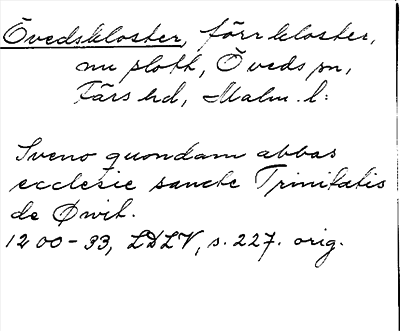 Övedskloster, förr kloster,
nu slott, Öveds sn,
Färs hd, Malm. l:
Sveno quondam abbas
ecclesie sancte Trinitatis
de Øwit.
1200-33, LDLV, s. 227. orig.